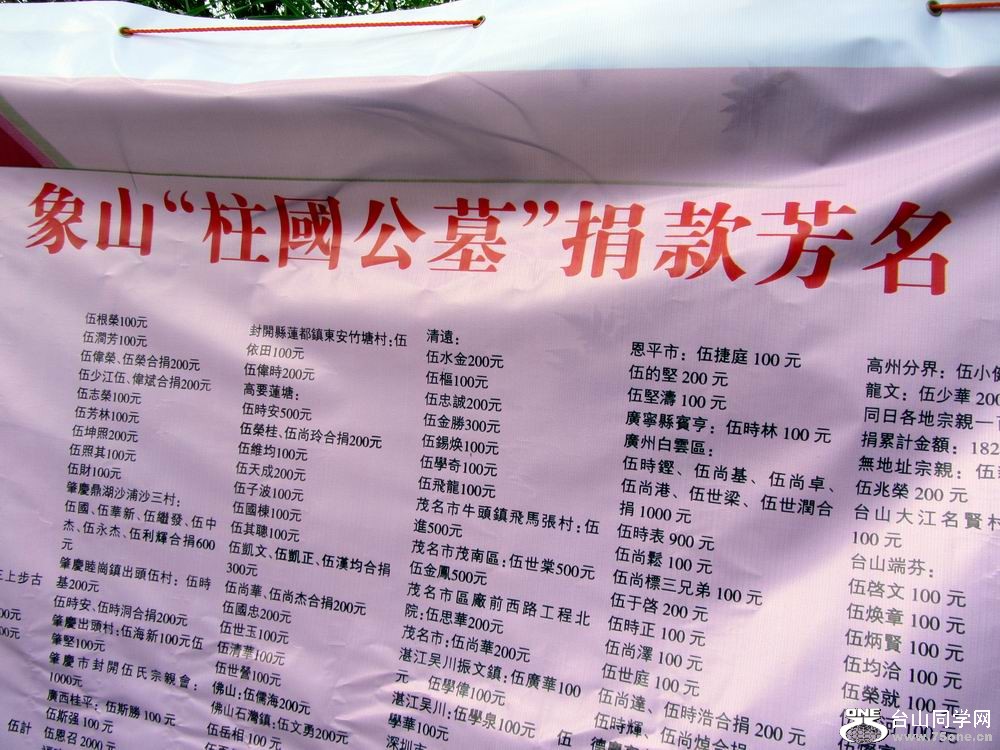 象山“柱國公墓”捐款芳名
伍根榮100元
伍潤芳100元
伍偉榮、伍榮合捐200元
伍少江伍、偉斌合捐200元
伍志榮100元
伍芳林100元
伍坤照200元
伍照其100元
伍財100元
肇慶鼎湖沙浦沙三村：
伍國、伍華新、伍繼發、伍中
杰、伍永杰、伍利輝合捐600
元
肇慶睦崗鎮出頭伍村：伍時
基200元
伍時安、伍時洞合捐200元
肇慶出頭村：伍海新100元伍
肇堅100元
肇慶市封開伍氏宗親會：
1000元
廣西桂平：伍斯勝 100 元
伍斯强 100 元
伍恩召 2000 元
三上步古
00元
00元
伍計
封開縣蓮都鎮東安竹塘村：伍
依田100元
伍偉時200元
高要蓮塘：
伍時安500元
伍榮桂、伍尚玲合捐200元
伍維均100元
伍天成200元
伍子波100元
伍國棟100元
伍其聰100元
伍凱文、伍凱正、伍漢均合捐
300元
伍尚華、伍尚杰合捐200元
伍國忠200元
伍世玉100元
伍清華100元
伍世營100元
佛山：伍儒海200元
佛山石灣鎮：伍文勇200元
伍岳相 100 元
清遠：
伍水金200元
伍樞100元
伍忠誠200元
伍金勝300元
伍錫焕100元
伍學奇100元
伍飛龍100元
茂名市牛頭鎮飛馬張村：伍
進500元
茂名市茂南區：伍世棠500元
伍金鳳500元
茂名市區廠前西路工程北
院：伍思華200元
茂名市：伍尚華200元
湛江吴川振文鎮：伍廣華100
元 伍學偉100元
湛江吴川：伍學泉100元 伍
學華100元
深圳市
恩平市：伍捷庭 100 元
伍的堅 200 元
伍堅濤 100 元
廣寧縣賓亨：伍時林 100 元
廣州白雲區：
伍時鏗、伍尚基、伍尚卓、
伍尚港、伍世梁、伍世潤合
捐 1000 元
伍時表 900 元
伍尚鬆 100 元
伍尚標三兄弟 100 元
伍于啓 200 元
伍時正 100 元
伍尚澤 100 元
伍世庭 100 元
伍尚達、伍時浩合捐 200 元
伍時輝、伍尚焯合捐
高州分界：伍小
龍文：伍少華 200
同日各地宗親一百
捐累計金額：182
無地址宗親：伍
伍兆榮 200 元
台山大江名賢村
100 元
台山端芬：
伍啓文 100 元
伍焕章 100 元
伍炳賢 100 元
伍均洽 100 元
伍榮就 100 元
ONE 台山同学网
www.75one.cn